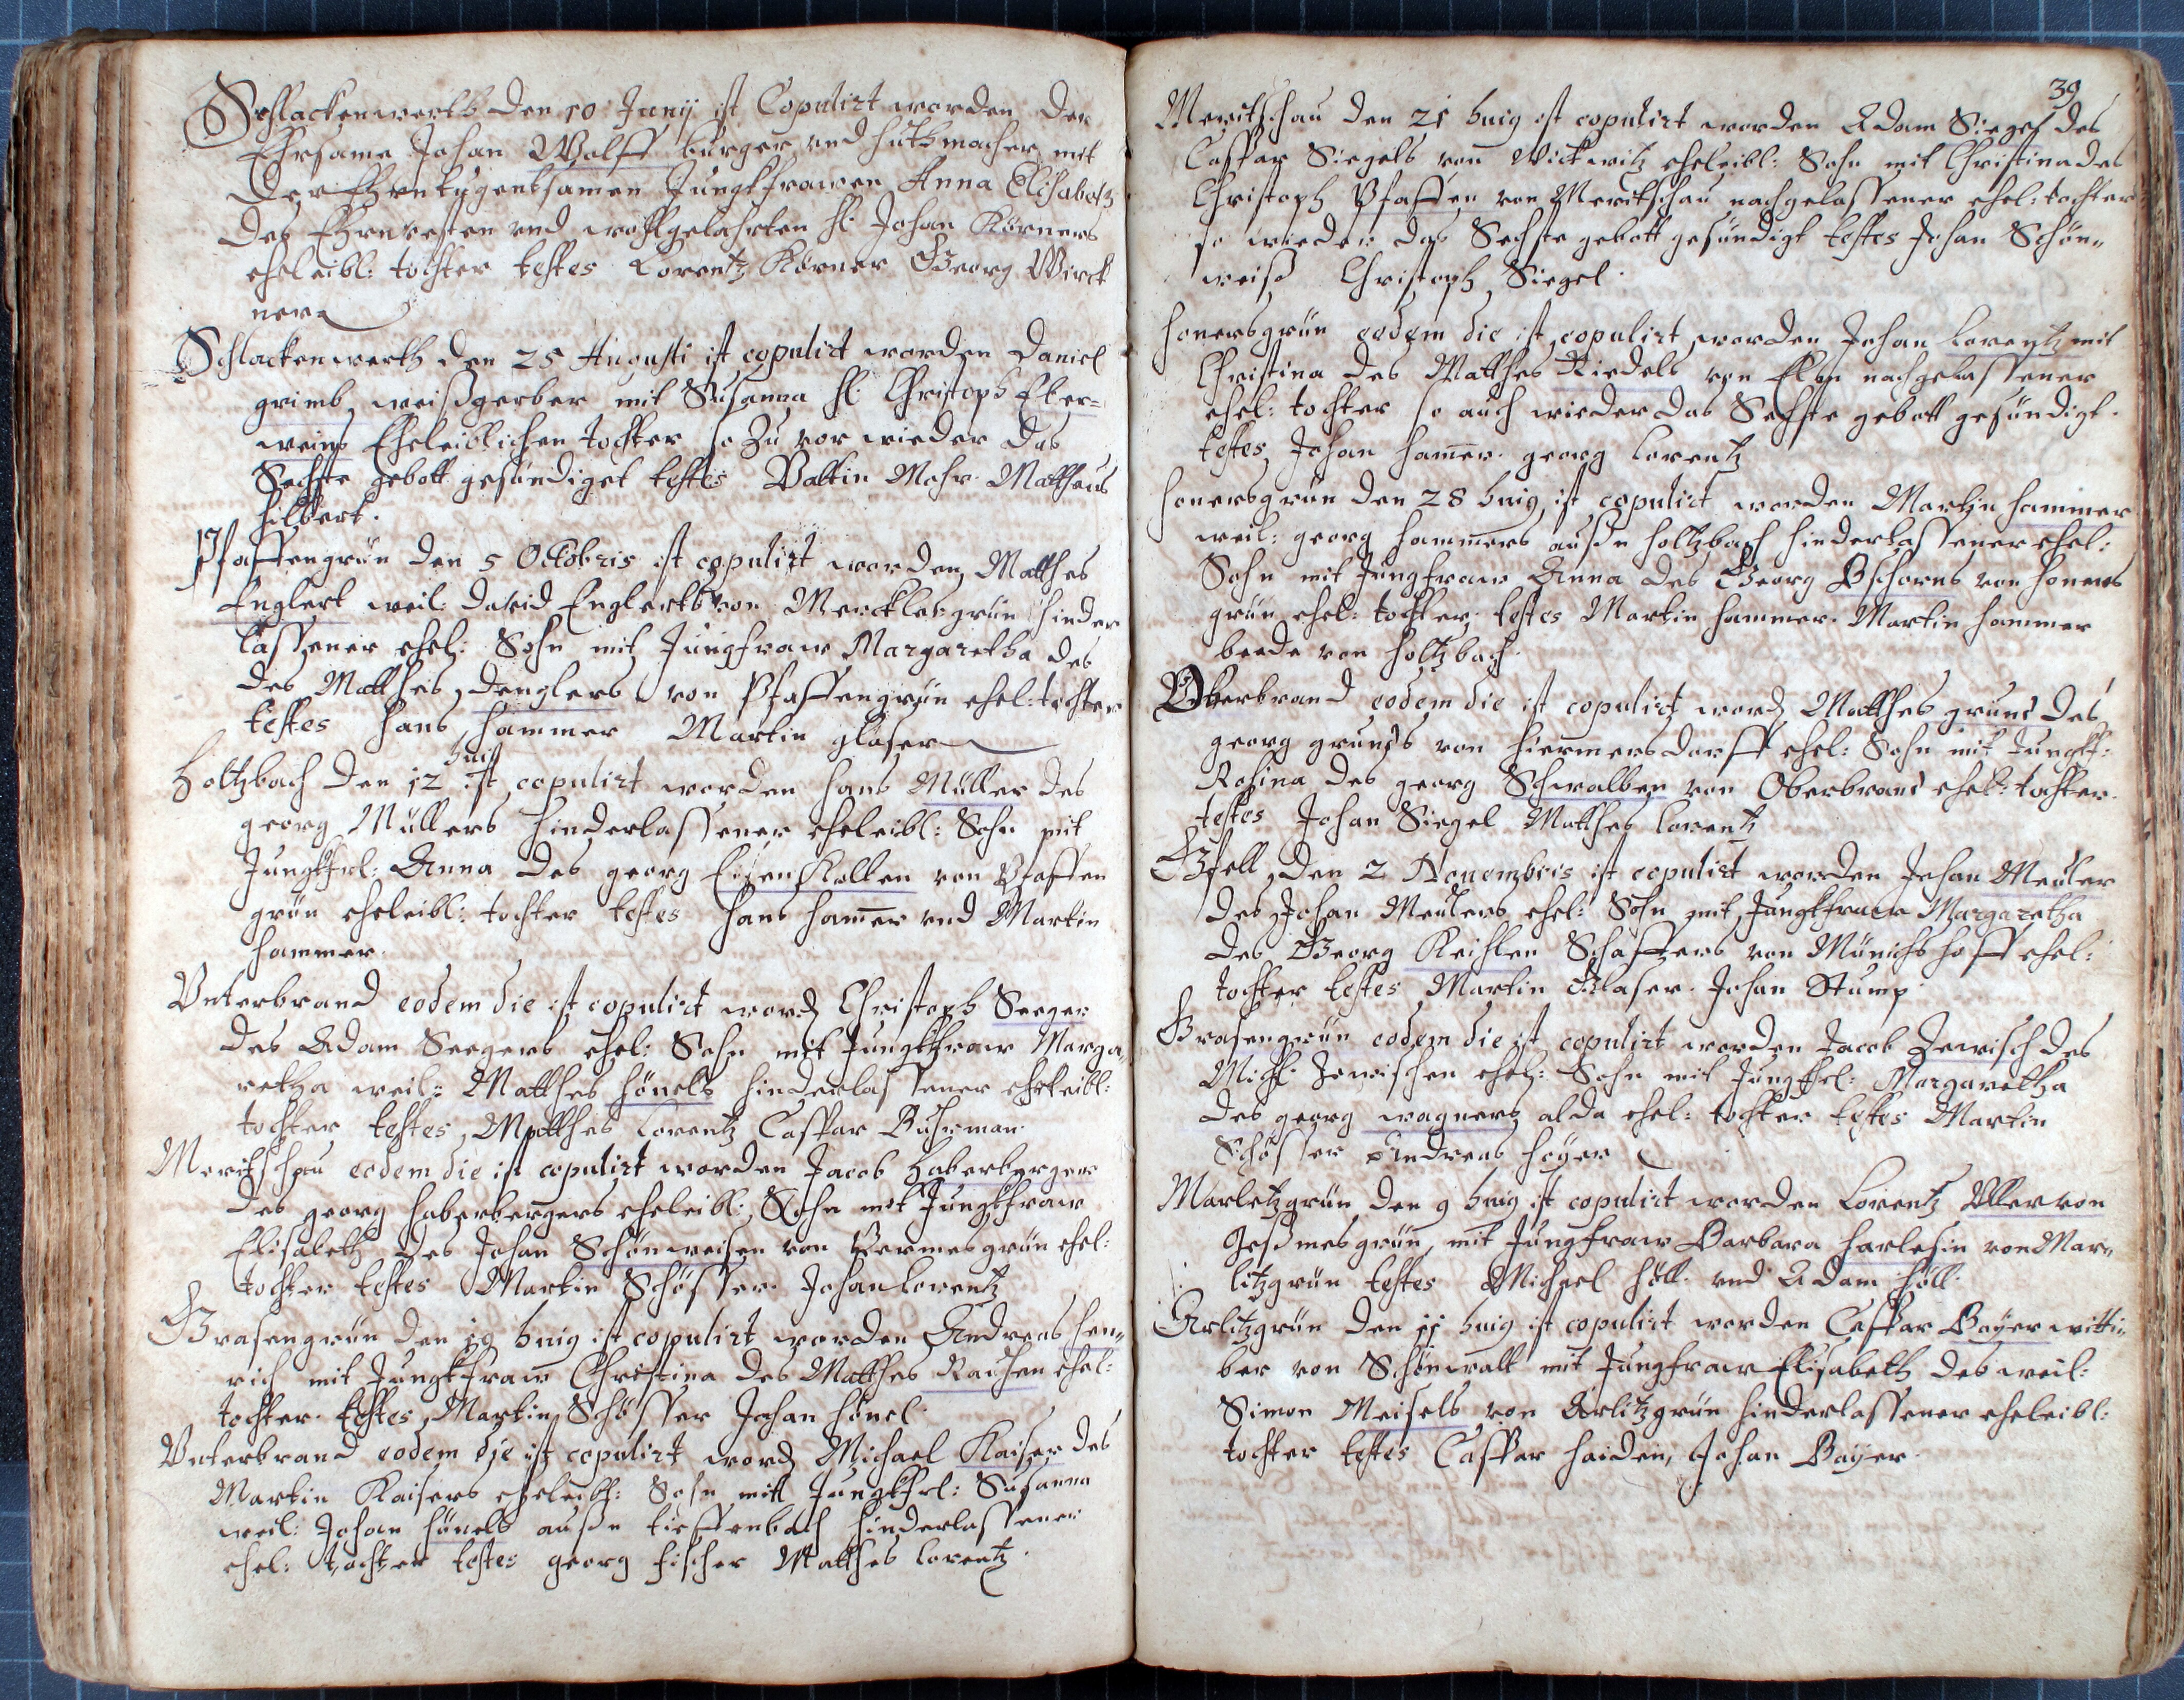 Schlackenwerth den 10 Junij ist Copulirt worden der
Ehrsame Johan Wolff burger und huthmacher mit
der Ehrntugentsamen Jungkfrawen Anna Elisabetz
des Ehrnvesten und wohlgelahrten H: Johan Körners
eheleibl: tochter testes Lorentz Körner Georg Wirck
ner
Schlackenwerth den 25 Augusti ist copulirt worden Daniel
grimb weißgerber mit Susanna H: Christoph Eber=
weins Eheleiblichen tochter so zu vor wieder das
Sechste gebott gesündiget testes Valtin Mohr. Mattheus
hilbert.
Pfaffengrün den 5 Octobris ist copulirt worden Matthes
Englert weil: David Englerts von Mercklesgrün hinder
lassener ehel: Sohn mit Jungfraw Margaretha des
des Matthes Denglers von Pfaffengrün ehel: tochter
testes hans hammer Martin glaser
Holtzbach den 12 huig ist copulirt worden hans Müller des
georg Müllers hinderlassener eheleibl: Sohn mit
Jungkfrl: Anna des georg Eisenkolben von Pfaffen
grün eheleibl: tochter testes hans ham̄er und Martin
hammer.
Unterbrand eodem die ist copulirt word Christoph Seeger
des Adam Seegers ehel: Sohn mit Jungkfraw Marga,,
retha weil: Matthes hönels hinderlassener eheleibl:
tochter testes Matthes Lorentz Caspar Buhrman.
Meritschau eodem die ist copulirt worden Jacob Haberberger
des georg haberbergers eheleibl: Sohn mit Jungkfraw
Elisabeth des Johan Schönweisen von Permesgrün ehel:
tochter testes Martin Schösser. Johan Lorentz
Grasengrün den 19 huig ist copulirt worden Andreas hen,,
rich mit Jungkfraw Christina des Matthes Raushen ehel:
tochter. testes Martin Schösser Johan hönel.
Unterbrand eodem die ist copulirt word Michael Kaiser des
Martin Kaisers eheleibl: Sohn mitt Jungkfrl: Susanna
weil: Johan hönels außn tieffenbach hinderlassener
ehel: tochter testes georg fischer Matthes Lorentz.
39
Meritschau den 21 huig ist copulirt worden Adam Siegel des
Caspar Siegels von Wickwitz eheleibl: Sohn mit Christina des
Christoph Pfaffen von Meritschau nachgelassener ehel: tochter
so wieder das Sechste gebott gesündigt testes Johan Schön,,
weiß Christoph Siegel.
honersgrün eodem die ist copulirt worden Johan Lorentz mit
Christina des Matthes Riedels von Elbn nachgelassener
ehel: tochter so auch wieder das Sechste gebott gesündigt.
testes Johan ham̄er. georg Lorentz
honersgrün den 28 huig ist copulirt worden Martin hammer
weil: georg hammers außn holtzbach hinderlassener ehel:
Sohn mit Jungfraw Anna des Georg Pschorns von honers
grün ehel: tochter testes Martin hammer. Martin hammer
beede von holtzbach.
Oberbrand eodem die ist copulirt word Matthes grund des
georg grunds von hiermersdorff ehel: Sohn mit Jungkf:
Rosina des georg Schwalben von Oberbrand ehel: tochter.
testes Johan Siegel Matthes Lorentz
Gsell den 2 Novembris ist copulirt worden Johan Meuler
des Johan Meulers ehel: Sohn mit Jungkfraw Margaretha
des Georg Keihlen Schaffers von Münichshoff ehel:
tochter testes Martin Glaser. Johan Stump
Grasengrün eodem die ist copulirt worden Jacob Zewisch des
Mich: Zewischen ehel: Sohn mit Jungkfrl: Margaretha
des georg wagners alda ehel: tochter testes Martin
Schösser Andreas höyer
Marletzgrün den 9 huig ist copulirt worden Lorentz Uller von
Joßmesgrün, mit Jungfraw Barbara harlesin von Mar,,
litzgrün testes Michael höll. und Adam höll.
Arlitzgrün den 11 huig ist copulirt worden Caspar Bayer witti,,
ber von Schönwalt mit Jungfraw Elisabeth des weil:
Simon Meisels von Arlitzgrün hinderlassener eheleibl:
tochter testes Caspar haiden, Johan Bayer.